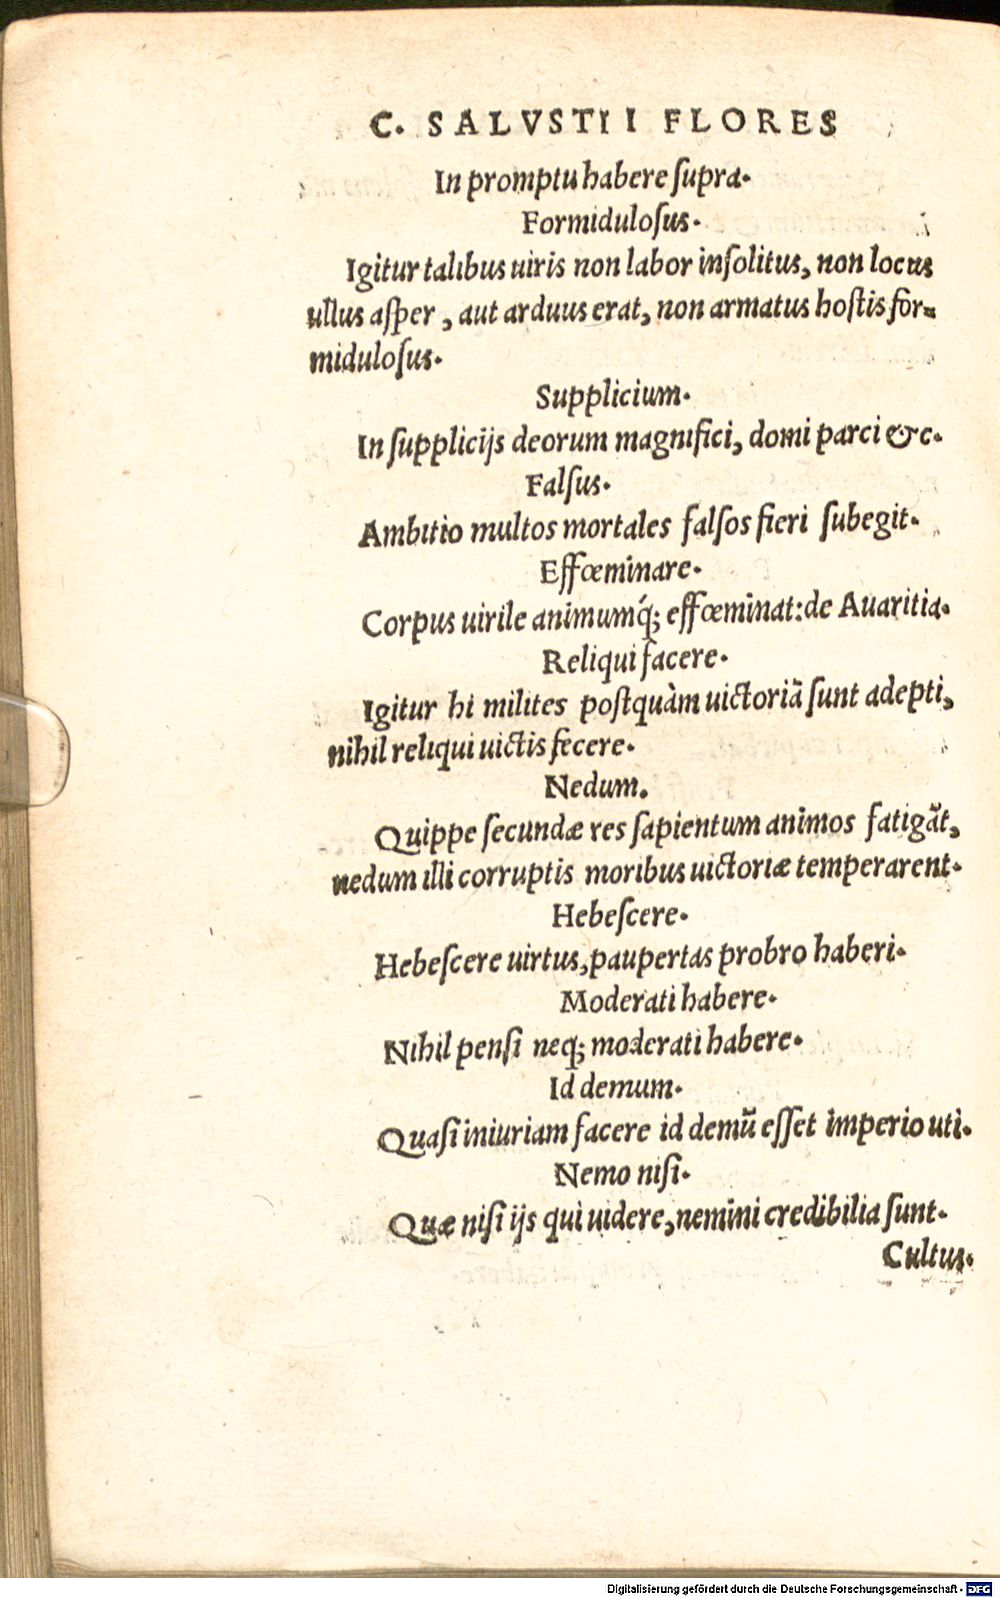 C. SALVSTII FLORES
In promptu habere ſupra.
Formiduloſus.
Igitur talibus uiris non labor inſolitus, non locus
ullus aſper, aut arduus erat, non armatus hoſtis for-
miduloſus.
Supplicium.
In ſupplicijs deorum magnifici, domi parci &c.
Falſus.
Ambitio multos mortales falſos fieri ſubegit.
Effœminare.
Corpus uirile animumq́; effœminat: de Auaritia.
Reliqui facere.
Igitur hi milites poſtquàm uictoriã ſunt adepti,
nihil reliqui uictis fecere.
Nedum.
Quippe ſecundæ res ſapientum animos fatigãt,
nedum illi corruptis moribus uictoriæ temperarent.
Hebeſcere.
Hebeſcere uirtus, paupertas probro haberi.
Moderati habere.
Nihil penſi neq; moderati habere.
Id demum.
Quaſi iniuriam facere id demũ eſſet imperio uti.
Nemo niſi.
Quæ niſi ijs qui uidere, nemini credibilia ſunt.
Cultus.
Digitalisierung gefördert durch die Deutsche Forschungsgemeinschaft - DFG